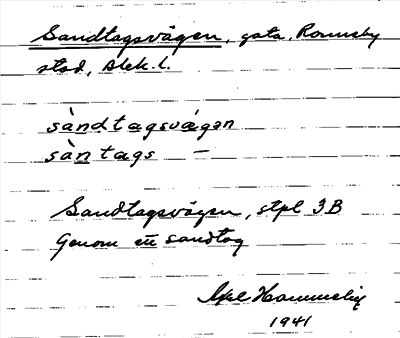 Sandtagsvägen, gata, Ronneby
stad, Blek. l.
sàndtagsvä́gən
sàntags —
Sandtagsvägen, stpl 3B
Genom ett sandtag
Axel Hammelin
1941